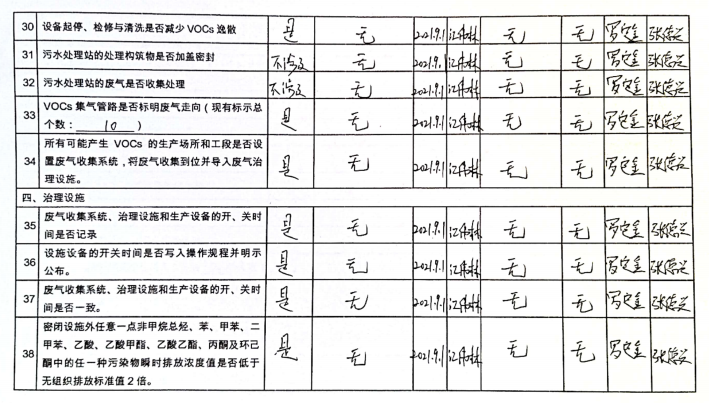 30 设备起停、检修与清洗是否减少 VOCs 逸散 是 无 2021.9.1 无 无
31 污水处理站的处理构筑物是否加盖密封 不涉及 无 2021.9.1 无 无
32 污水处理站的废气是否收集处理 不涉及 无 2021.9.1 无 无
33 VOCs 集气管路是否标明废气走向(现有标示总
个数:10) 是 无 2021.9.1 无 无
34 所有可能产生 VOCs 的生产场所和工段是否设
置废气收集系统,将废气收集到位并导入废气治
理设施。 是 无 2021.9.1 无 无
四、治理设施
35 废气收集系统、治理设施和生产设备的开、关时
间是否记录 是 无 2021.9.1 无 无
36 设施设备的开关时间是否写入操作规程并明示
公布。 是 无 2021.9.1 无 无
37 废气收集系统、治理设施和生产设备的开、关时
间是否一致。 是 无 2021.9.1 无 无
38 密闭设施外任意一点非甲烷总烃、苯、甲苯、二
甲苯、乙酸、乙酸甲酯、乙酸乙酯、丙酮及环己
酮中的任一种污染物瞬时排放浓度值是否低于
无组织排放标准值 2 倍。 是 无 2021.9.1 无 无